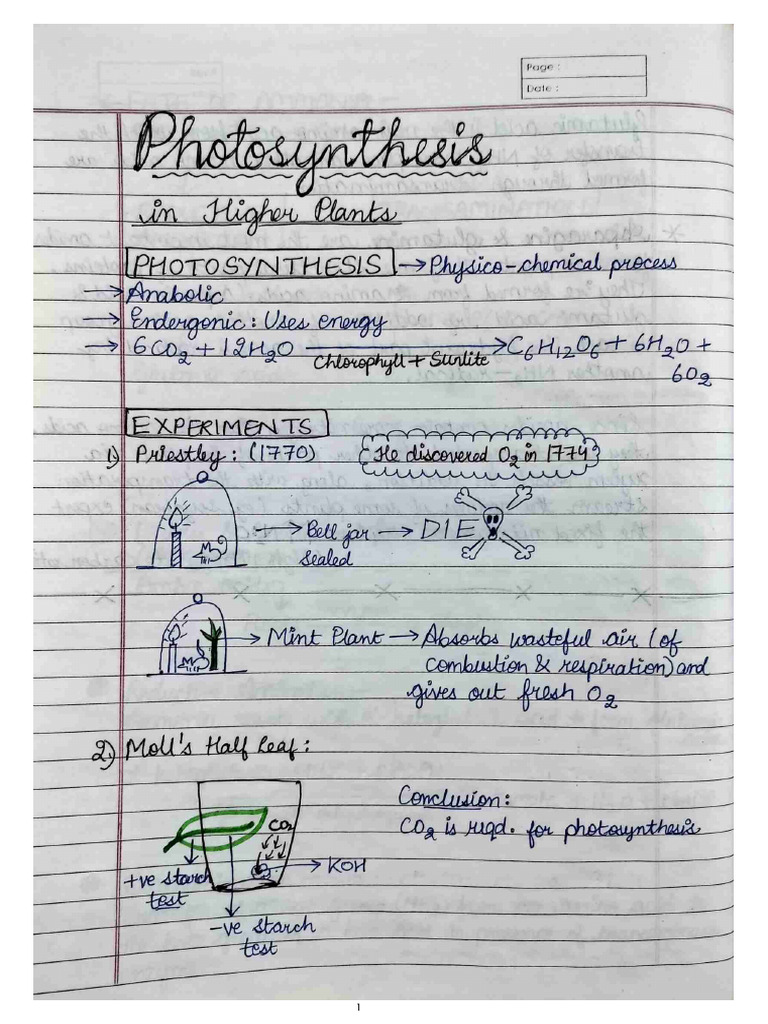 Page :
Date :
Photosynthesis
in Higher Plants
PHOTOSYNTHESIS → Physico-chemical process
→ Anabolic
→ Endergonic: Uses energy
→ 6CO₂ + 12H₂O → C₆H₁₂O₆ + 6H₂O +
Chlorophyll + Sunlite
6O₂
EXPERIMENTS
1) Priestley: (1770) He discovered O₂ in 1774
→ Bell jar → DIE
sealed
→ Mint Plant → Absorbs wasteful air (of
combustion & respiration) and
gives out fresh O₂
2) Moll's Half Leaf:
Conclusion:
CO₂ is reqd. for photosynthesis
CO₂
→ KOH
+ve starch
test
-ve starch
test
1